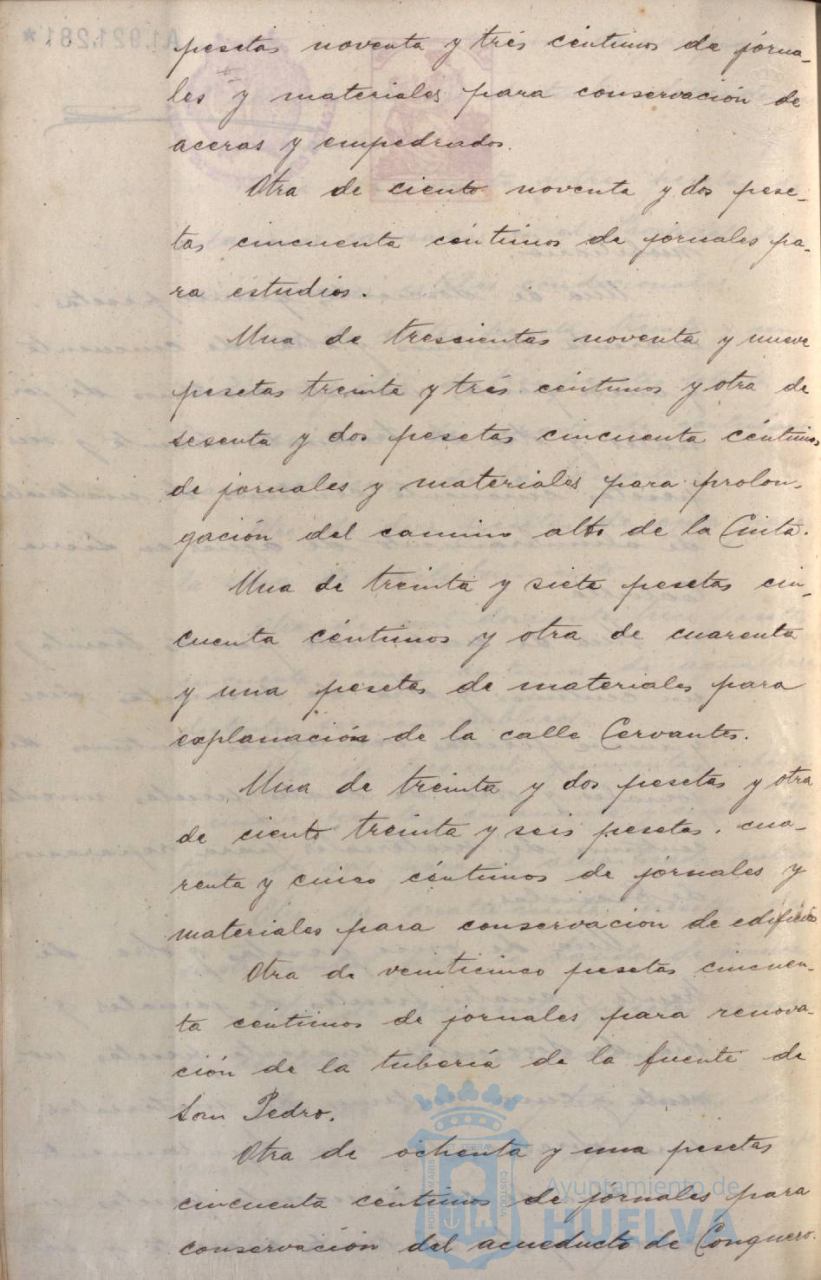 pesetas noventa y trés céntimos de jorna-
les y materiales para conservación de
aceras y empedrados.
Otra de ciento noventa y dos pese-
tas cincuenta céntimos de jornales pa-
ra estudios.
Una de trescientas noventa y nueve
pesetas treinta y trés céntimos y otra de
sesenta y dos pesetas cincuenta céntimos
de jornales y materiales para prolon-
gación del camino alto de la Cinta.
Una de treinta y siete pesetas cin-
cuenta céntimos y otra de cuarenta
y una pesetas de materiales para
explanación de la calle Cervantes.
Una de treinta y dos pesetas y otra
de ciento treinta y seis pesetas, cua-
renta y cinco céntimos de jornales y
materiales para conservacion de edificios
Otra de veinticinco pesetas cincuen-
ta céntimos de jornales para renova-
ción de la tubería de la fuente de
San Pedro.
Otra de ochenta y una pesetas
cincuenta céntimos de jornales para
conservación del acueducto de Conquero.
A1.921.281*
Ayuntamiento de
HUELVA